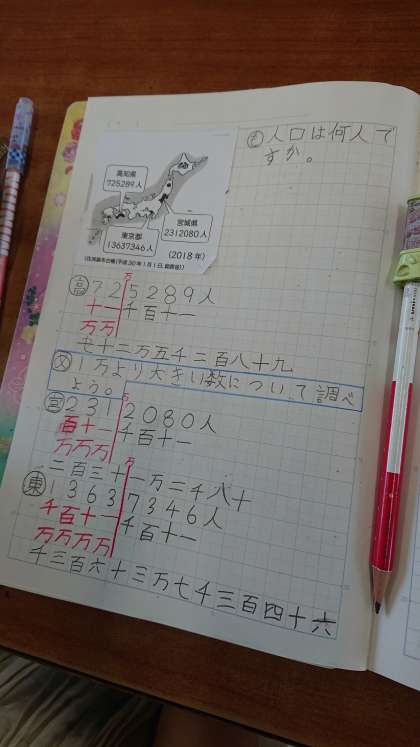 高知県
725289人
宮城県
2312080人
東京都
13637346人
(2018年)
も 人口は何人で
すか。
高 72万5289人
十一千百十一
万万
七十二万五千二百八十九
め 1万より大きい数について調べ
よう。
宮 231万2080人
百十一千百十一
万万万
二百三十一万二千八十
東 1363万7346人
千百十一千百十一
万万万万
千三百六十三万七千三百四十六